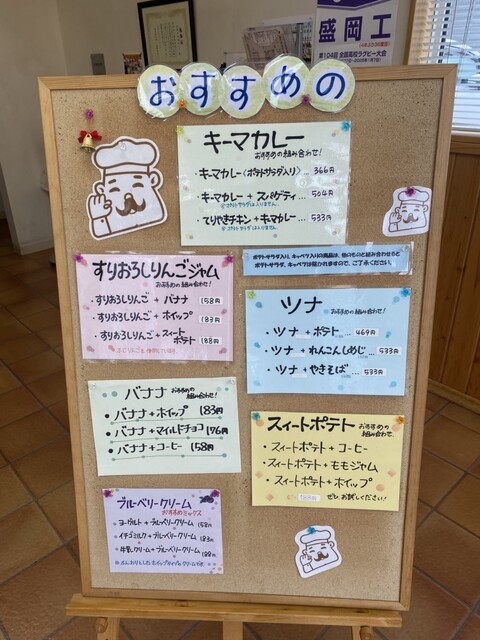 盛岡工
第104回 全国高校ラグビー大会
おすすめの
キーマカレー
おすすめの組み合わせ!
・キーマカレー〈ポテトサラダ入り〉… 366円
・キーマカレー + スパゲティ … 504円
※ポテトサラダは入りません。
・てりやきチキン + キーマカレー … 533円
※ポテトサラダは入りません。
ポテトサラダ入り、キャベツ入りの商品は、他のものと組み合わせると
ポテトサラダ、キャベツは除かれますので、ご了承ください。
すりおろしりんごジャム
おすすめの組み合わせ!
・すりおろしりんご + バナナ 158円
・すりおろしりんご + ホイップ 183円
・すりおろしりんご + スィートポテト 188円
ツナ
おすすめの組み合わせ!
・ツナ + ポテト … 469円
・ツナ + れんこんしめじ … 533円
・ツナ + やきそば … 533円
バナナ おすすめの組み合わせ!
・バナナ + ホイップ 183円
・バナナ + マイルドチョコ 176円
・バナナ + コーヒー 158円
スィートポテト おすすめの組み合わせ
・スィートポテト + コーヒー
・スィートポテト + ももジャム
・スィートポテト + ホイップ
183円 ぜひ、お試しください!
ブルーベリークリーム
おすすめミックス
・ヨーグルト + ブルーベリークリーム 158円
・イチゴミルク + ブルーベリークリーム 183円
・牛乳クリーム + ブルーベリークリーム 188円